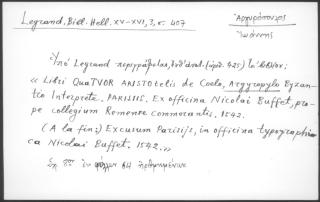 Legrand. Bibl. Hell. XV-XVI, 3, σ. 407
Ἀργυρόπουλος
Ἰωάννης
Ὑπὸ Legrand περιγράφεται, (ἀριθ. 425) τὸ βιβλίον:
« Libri QuaTVOR ARISTOtelis de Coelo, Argyropylo Byzan-
tio Interprete. PARISIIS, Ex officina Nicolai Buffet, pro-
pe collegium Remense commorantis. 1542.
(A la fin:) Excusum Parisijs, in officina typographi-
ca Nicolai Buffet. 1542.»